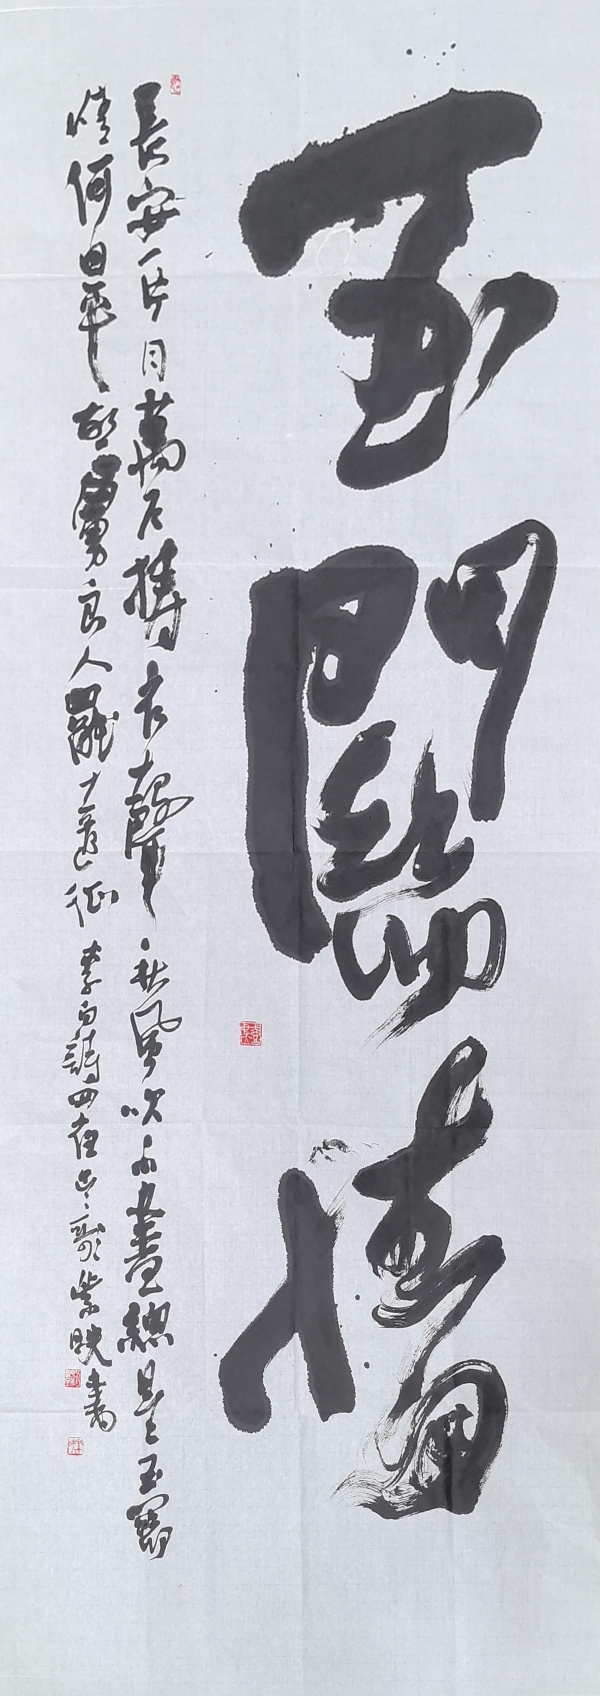 玉關情
長安一片月萬戶擣衣聲秋風吹不盡總是玉關
情何日平胡虜良人罷遠征李白詩四在子夜歌紫映書